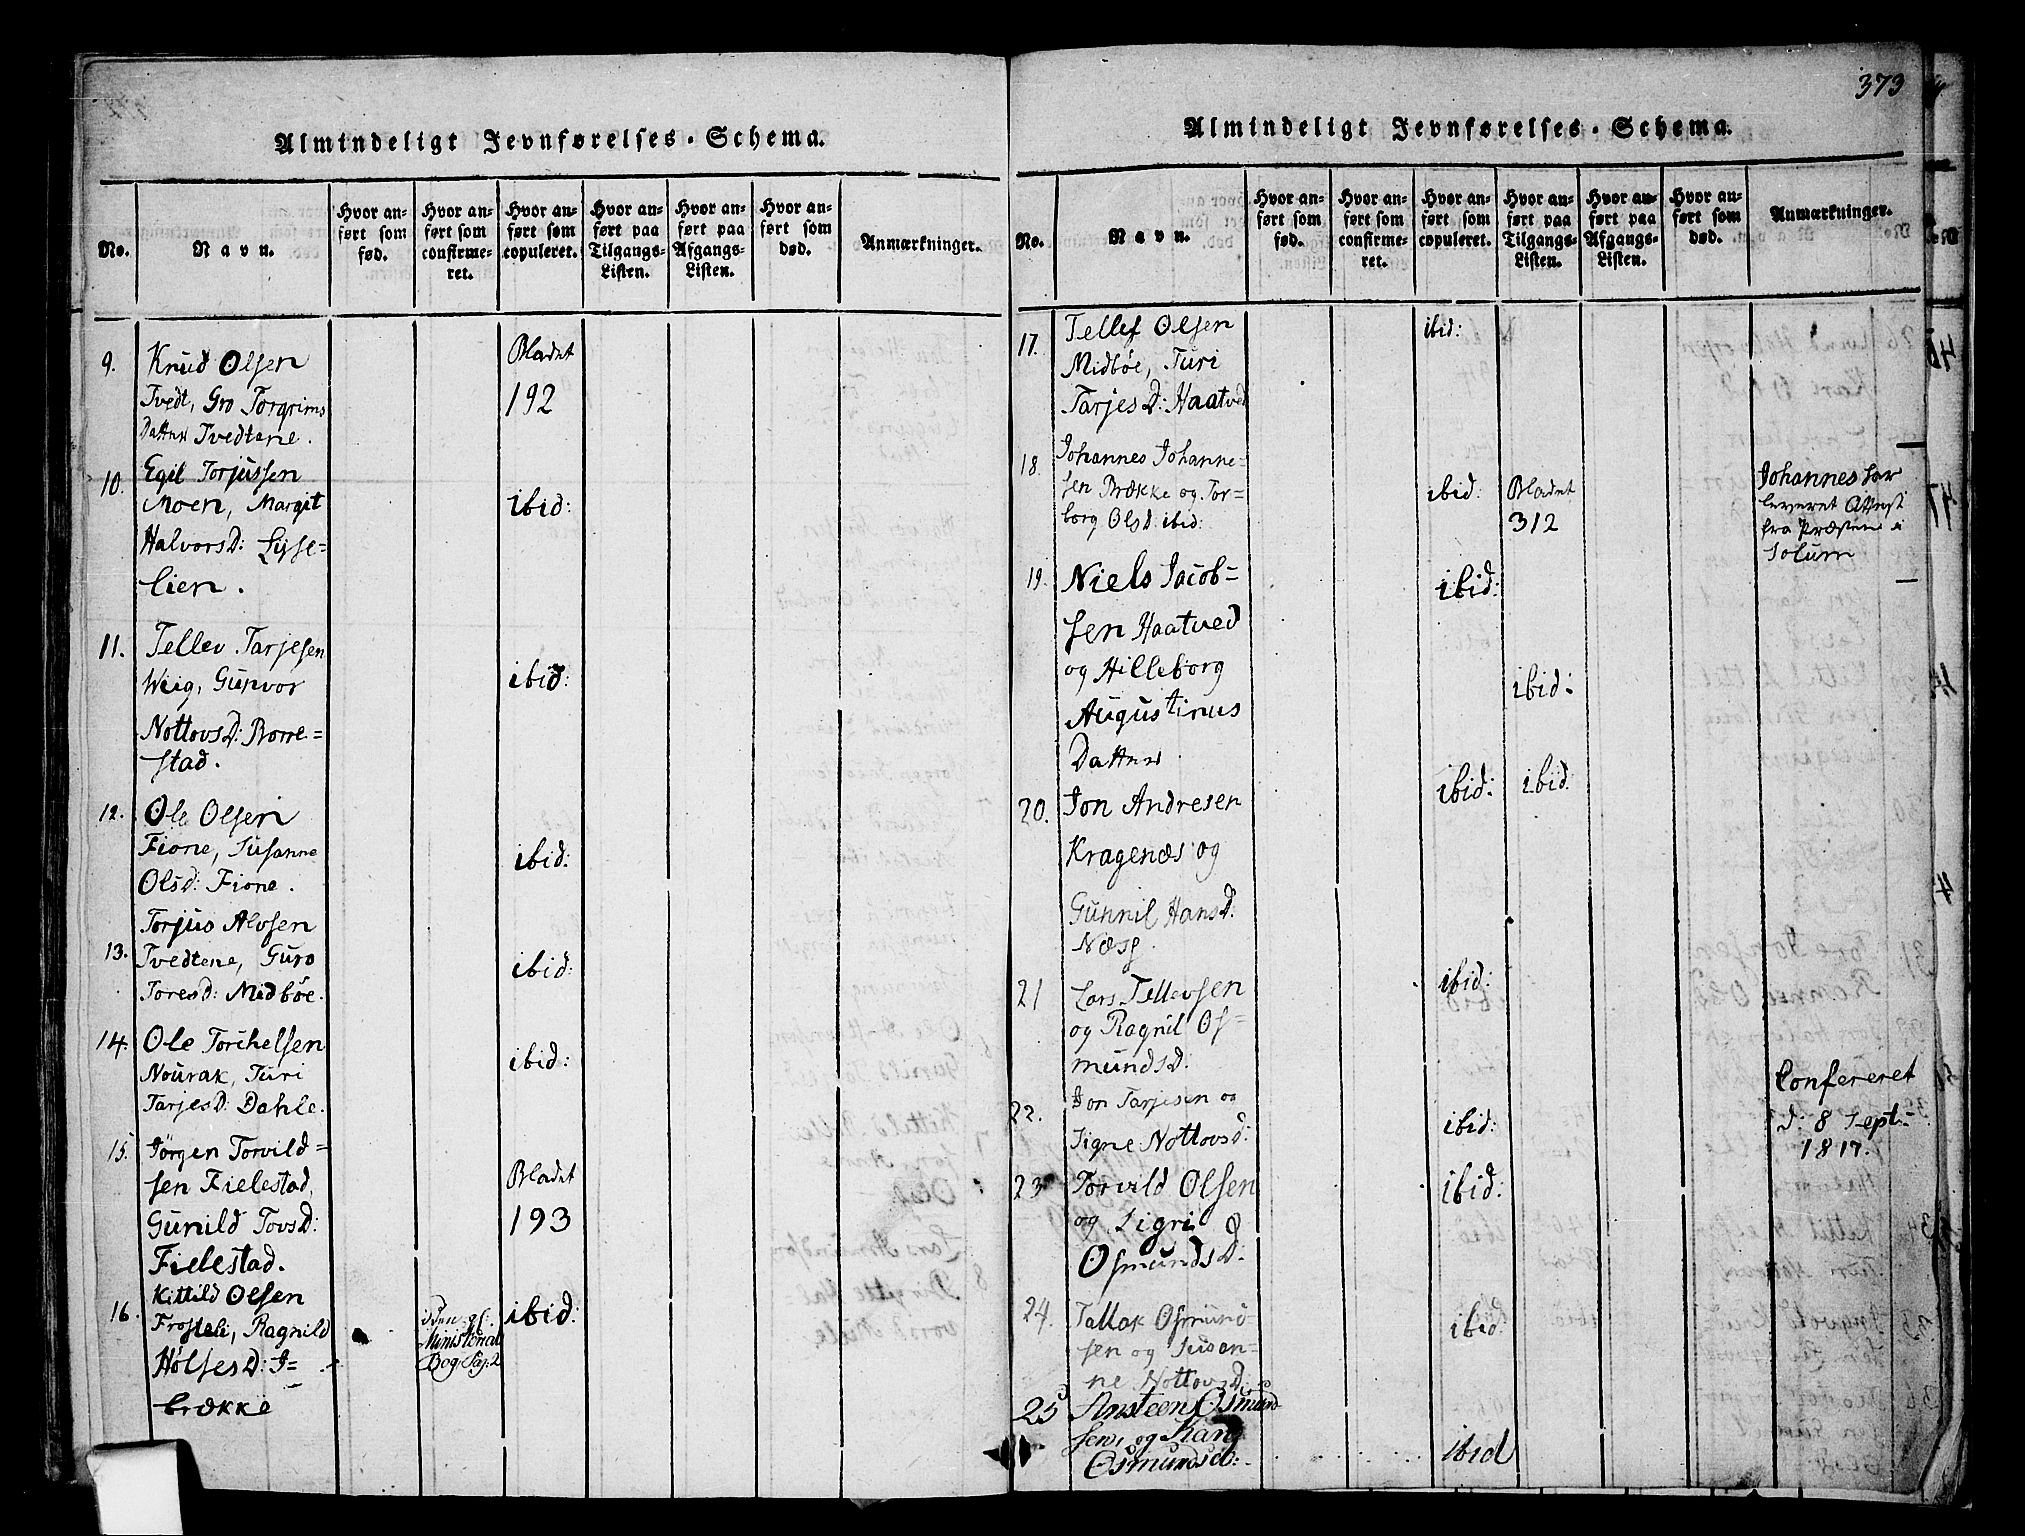 373
Almindeligt Jevnførelses-Schema.
No.
Navn.
Hvor an-
ført som
fød.
Hvor an-
ført som
confirme-
ret.
Hvor an-
ført som
copuleret.
Hvor an-
ført paa
Tilgangs-
Listen.
Hvor an-
ført paa
Afgangs-
Listen.
Hvor an-
ført som
død.
Anmærkninger.
9. Knud Olsen
Tvedt, Gro Torgrims
Datter Tvedtene.
Bladet
192
10. Egil Torjussen
Moen, Margit
HalvorsD: Lysse=
lien.
ibid:
11. Tellev Tarjesen
Weig, Gunvor
NottovsD: Borre=
stad.
ibid:
12. Ole Olsen
Fione, Susanne
OlsD: Fione.
ibid:
13. Torjus Alvsen
Tvedtene, Guro
Toresd: Midbøe.
ibid:
14. Ole Torchelsen
Nourak, Turi
TarjesD: Dahle.
ibid:
15. Jörgen Torvild=
sen Fielestad,
Gunild TovsD:
Fielestad.
Bladet
193
16. Kittild Olsen
Frosteli, Ragnild
HølsesD: I=
brække
Ministerial
Bog Pag: 2
ibid:
Almindeligt Jevnførelses-Schema.
No.
Navn.
Hvor an-
ført som
fød.
Hvor an-
ført som
confirme-
ret.
Hvor an-
ført som
copuleret.
Hvor an-
ført paa
Tilgangs-
Listen.
Hvor an-
ført paa
Afgangs-
Listen.
Hvor an-
ført som
død.
Anmærkninger.
17. Tellef Olsen
Midbøe, Turi
TarjesD: Haatved
ibid:
18. Johannes Johanne=
sen Brække og Tor=
borg Olsd: ibid:
ibid:
Bladet
312
Johannes har
leveret Attest
fra Præsten i
Solum
19. Niels Jacob=
sen Haatved
og Hilleborg
Augustinus
Datter.
ibid:
ibid:
20. Jon Andresen
Kragenæs og
Gunnil HansD:
Næss.
ibid:
ibid:
21 Lars Tellevsen
og Ragnil Os=
mundsD:
ibid:
22. Jon Tarjesen og
Signe Nottovsd:
ibid:
Confereret
d: 8 Sept:
1817.
23 Torvild Olsen
og Sigri
OsmundsD:
ibid:
24. Tallak Osmund=
sen og Susan=
ne NottovsD:
ibid:
25 Ansteen Osmund
sen, og Kari
Osmundsd:
ibid